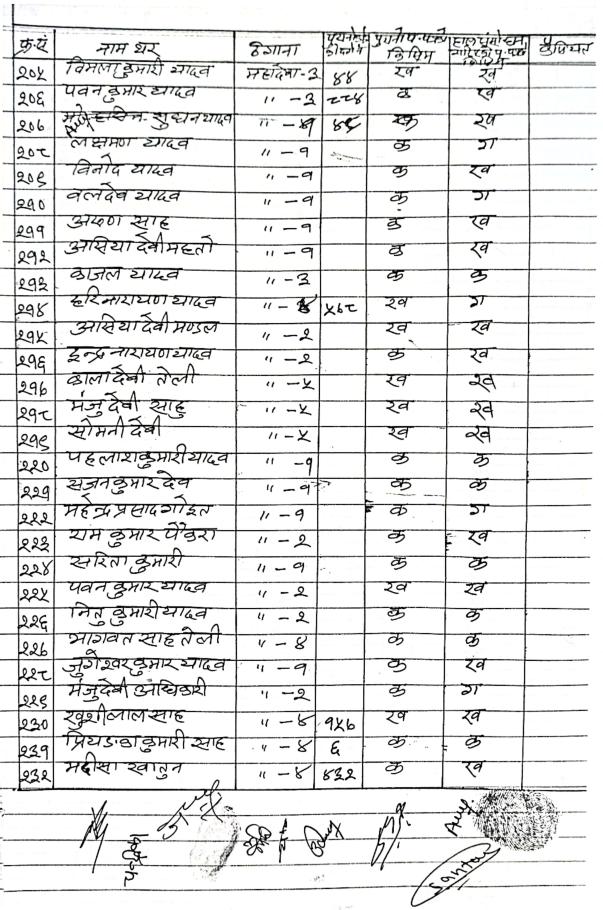 क्र.सं नाम थर ठेगाना
२०५ विमला कुमारी यादव महादेवा-३ ४४ ख ख
२०६ पवन कुमार यादव " -३ २२४ क ख
२०७ सुधन यादव " -४ क ख
२०८ लक्षमण यादव " -१ क ग
२०९ विनोद यादव " -१ क ख
२१० वलदेव यादव " -१ क ग
२११ अरुण साह " -१ क ख
२१२ आसिया देवी महतो " -१ क ख
२१३ काजल यादव " -३ क क
२१४ हरिनारायण यादव " -४ ५७८ ख ग
२१५ आसिया देवी मण्डल " -२ ख ख
२१६ इन्द्र नारायण यादव " -२ क ख
२१७ काला देवी तेली " -५ ख ख
२१८ मंजु देवी साहु " -५ ख ख
२१९ सोमनी देवी " -५ ख ख
२२० पहलाश कुमारी यादव " -१ क क
२२१ सजन कुमार देव " -१ क क
२२२ महेन्द्र प्रसाद गोईत " -१ क ग
२२३ राम कुमार पँजरा " -२ क ख
२२४ सरिता कुमारी " -१ क क
२२५ पवन कुमार यादव " -२ ख ख
२२६ नितु कुमारी यादव " -२ क क
२२७ भागवत साह तेली " -४ क क
२२८ जुगेश्वर कुमार यादव " -१ क ख
२२९ मंजु देवी अधिकारी " -२ क ग
२३० खुशीलाल साह " -४ १५७ ख ख
२३१ प्रियङका कुमारी साह " -४ ६ क क
२३२ मदीसा खातुन " -४ ४३२ क ख
Santav